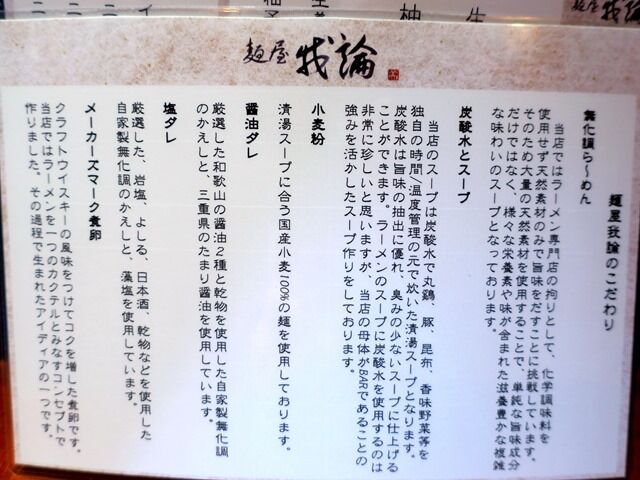 麺屋 我論
麺屋我論のこだわり
無化調ら〜めん
当店ではラーメン専門店の拘りとして、化学調味料を
使用せず天然素材のみで旨味をだすことに挑戦しています。
そのため大量の天然素材を使用することで、単純な旨味成分
だけではなく、様々な栄養素や味が含まれた滋養豊かな複雑
な味わいのスープとなっております。
炭酸水とスープ
当店のスープは炭酸水で丸鶏、豚、昆布、香味野菜等を
独自の時間/温度管理の元で炊いた清湯スープとなります。
炭酸水は旨味の抽出に優れ、臭みの少ないスープに仕上げる
ことができます。ラーメンのスープに炭酸水を使用するのは
非常に珍しいと思いますが、当店の母体がBARであることの
強みを活かしたスープ作りをしております。
小麦粉
清湯スープに合う国産小麦100%の麺を使用しております。
醤油ダレ
厳選した和歌山の醤油2種と乾物を使用した自家製無化調
のかえしと、三重県のたまり醤油を使用しています。
塩ダレ
厳選した、岩塩、よしる、日本酒、乾物などを使用した
自家製無化調のかえしと、藻塩を使用しています。
メーカーズマーク煮卵
クラフトウイスキーの風味をつけてコクを増した煮卵です。
当店ではラーメンを一つのカクテルとみなすコンセプトで
作りました。その過程で生まれたアイディアの一つです。